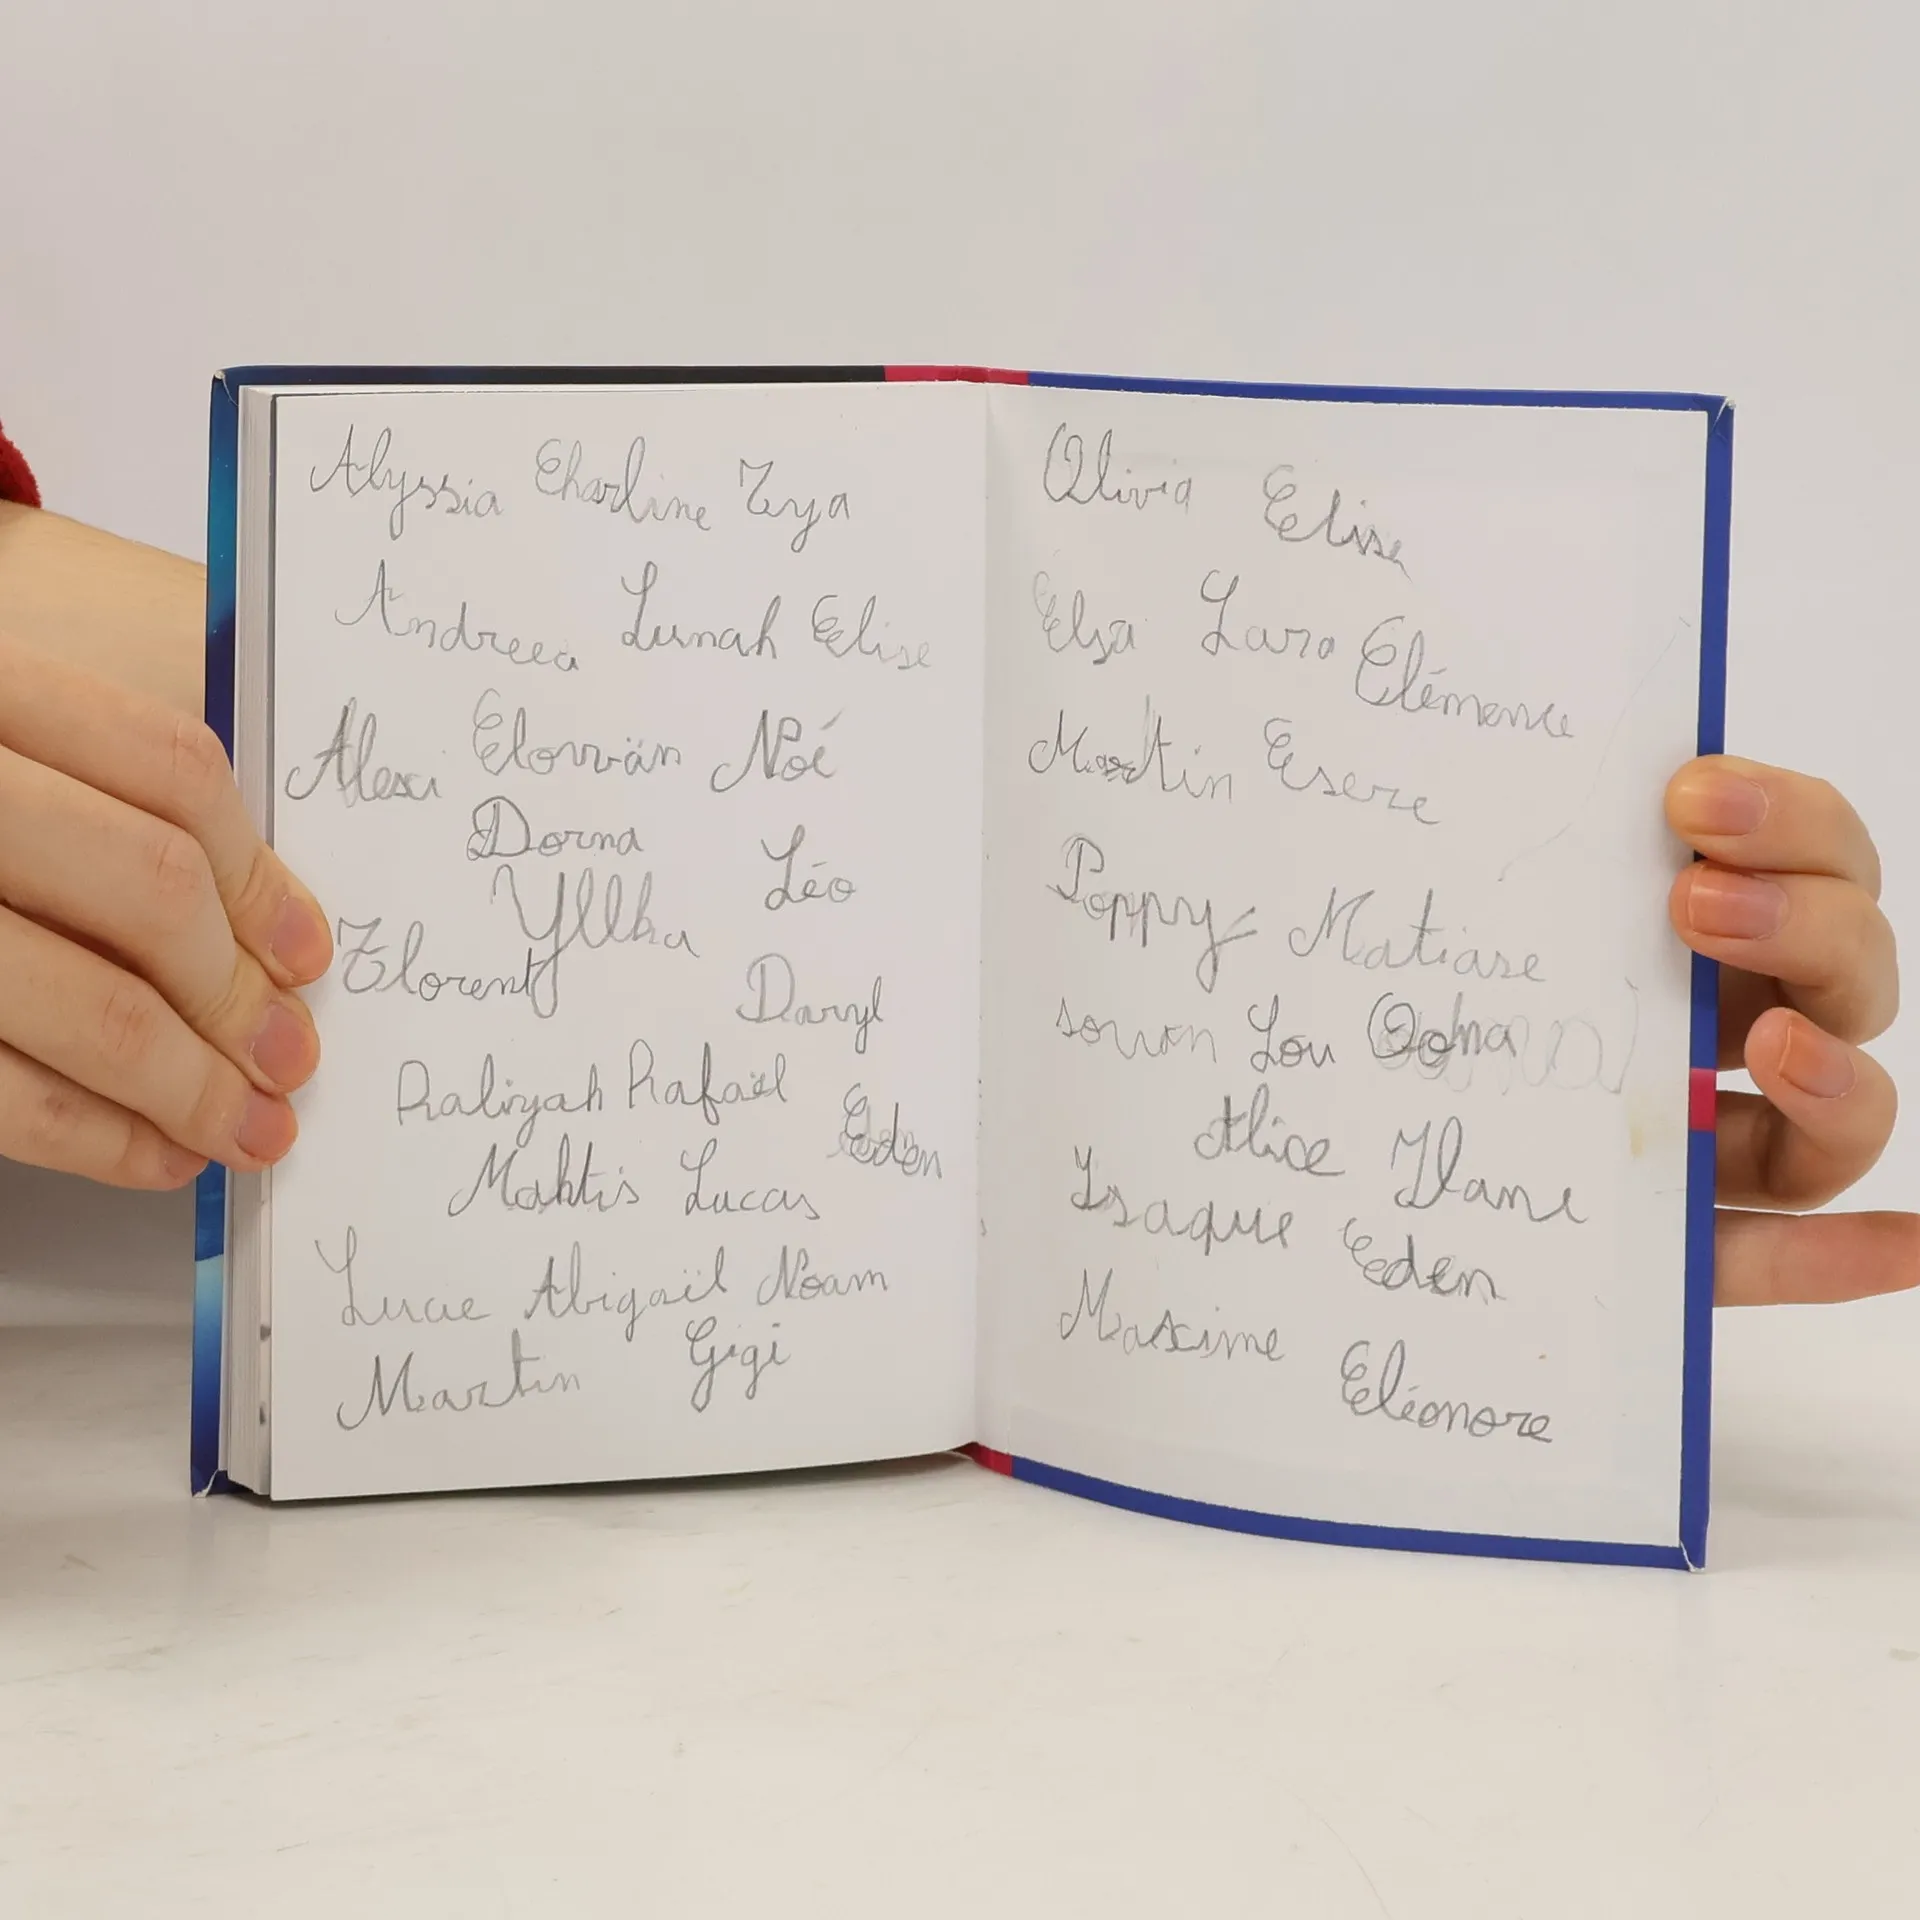 Alyssia Charline Zya
Andreea Lunah Elise
Alexi Elowän Noé
Dorna
Yllka Léo
Florent
Daryl
Raliyah Rafaël
Eden
Mahtis Lucas
Lucie Abigaïl Noam
Martin Gigi
Olivia Elise
Elsa Lara Clémence
Martin Esere
Poppy Matiase
Lou
Alice Ilani
Isaque Eden
Maxime
Eléonore